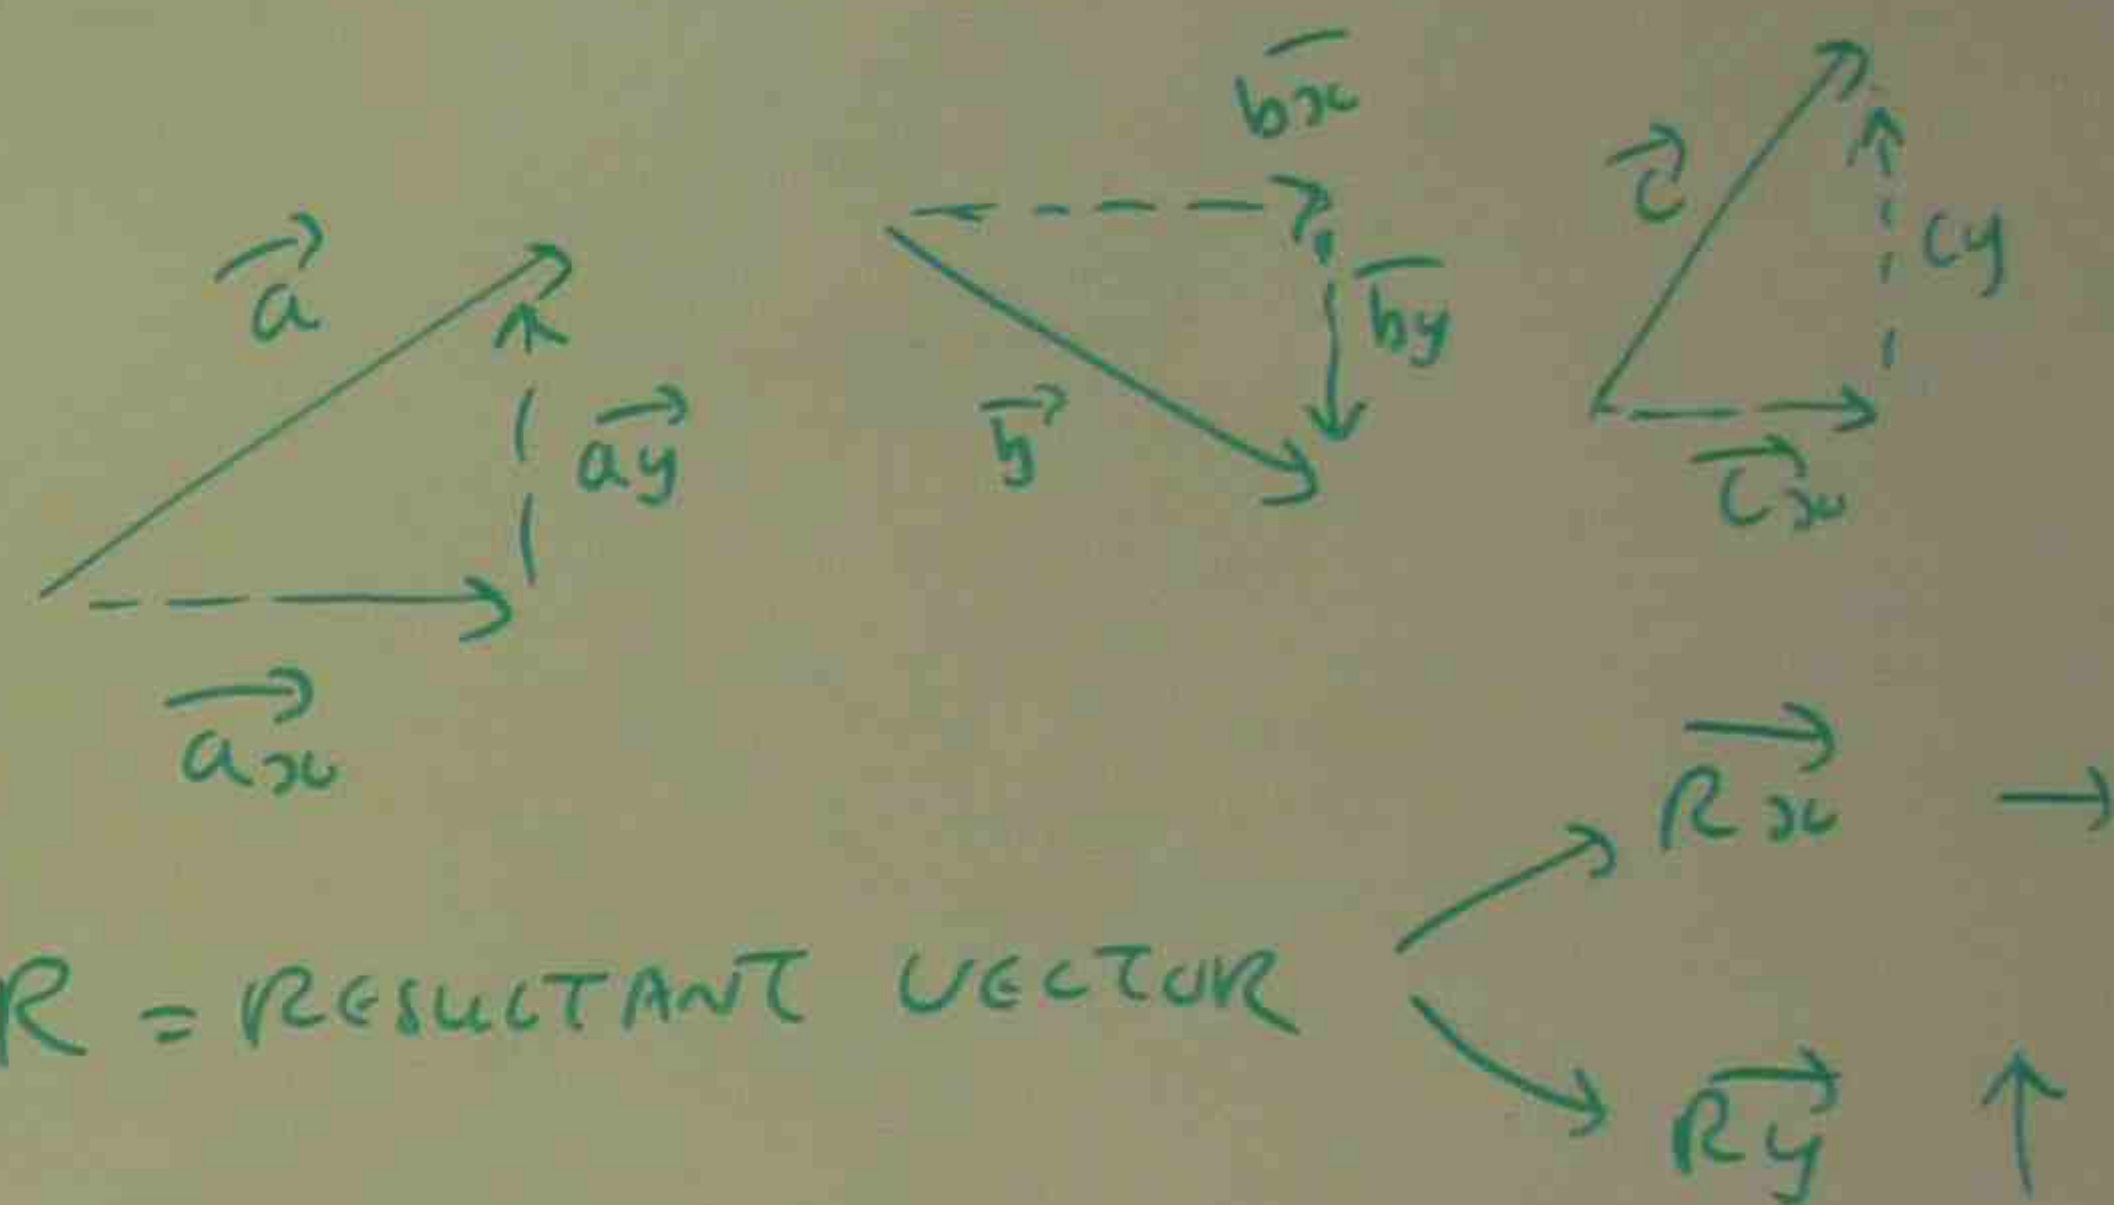 a
ax
ay
bx
by
b
c
cy
cx
R = RESULTANT VECTOR
Rx →
Ry ↑